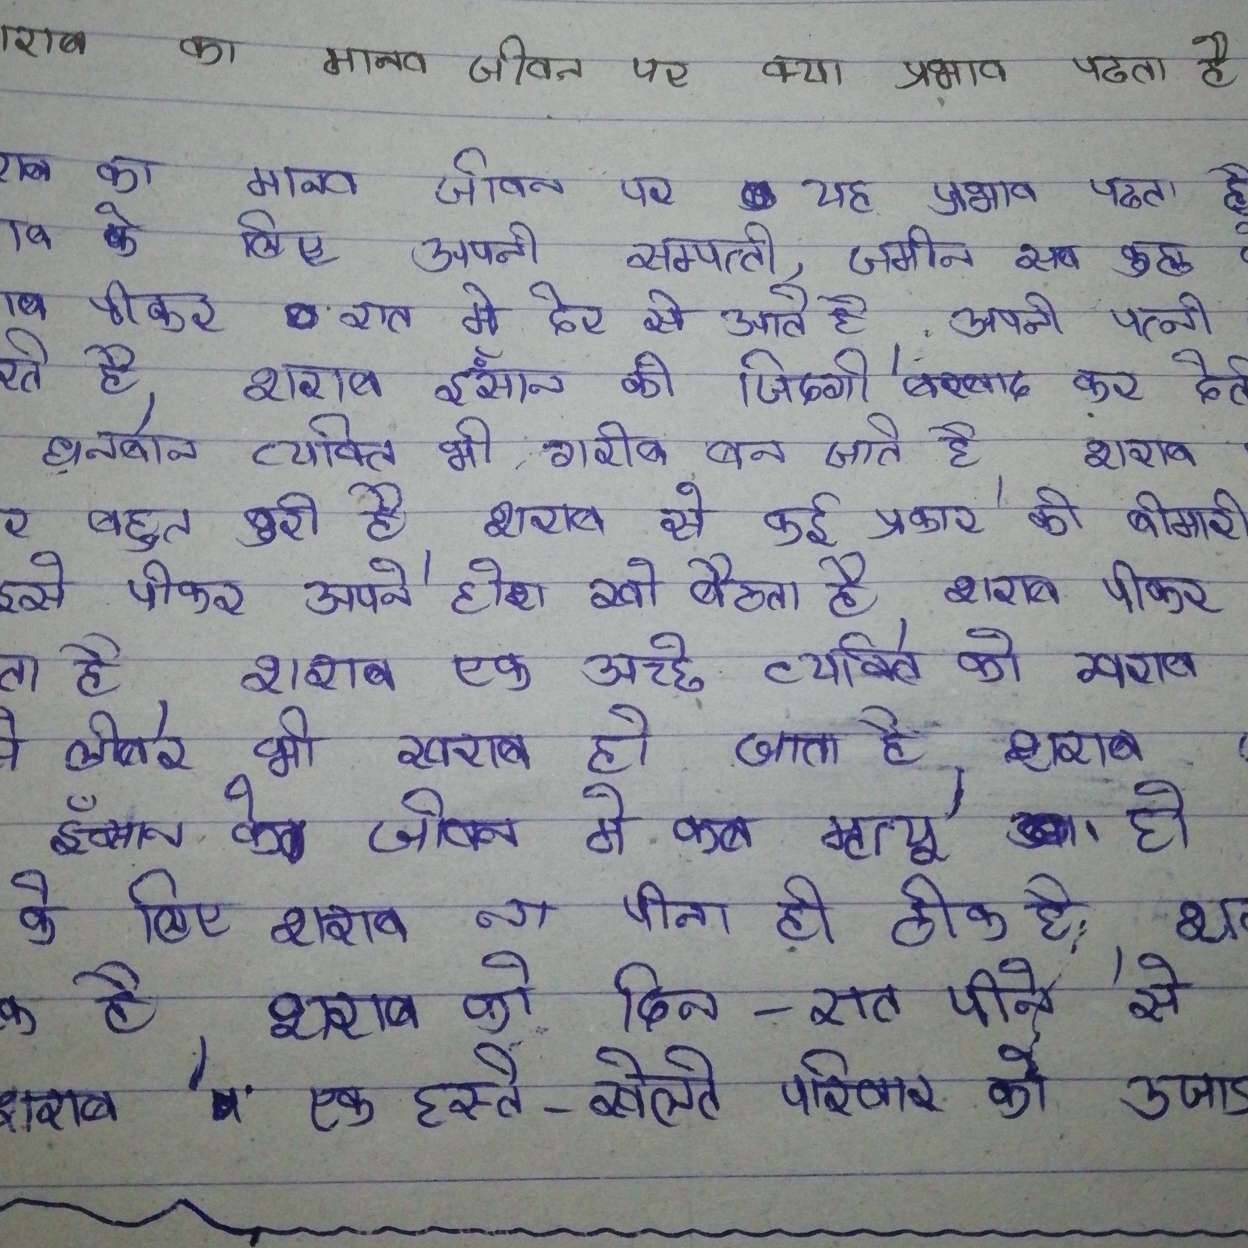 ाराब का मानव जीवन पर क्या प्रभाव पढता है
राब का मानव जीवन पर यह प्रभाव पढता है
ाब के लिए अपनी सम्पत्ती, जमीन सब कुछ
ाब पीकर रात मे देर से आते है अपनी पत्नी
रते है, शराब इँसान की जिदगी बरबाद कर देती
धनवान व्यक्ति भी गरीब बन जाते है शराब
र बहुत बुरी है शराब से कई प्रकार की बीमारी
इसे पीकर अपने होश खो बैठता है शराब पीकर
ता है, शराब एक अच्छे व्यक्ति को खराब
से लीवर भी खराब हो जाता है, शराब
इँसान के जीवन मे कब मृत्यू हो
के लिए शराब ना पीना ही ठीक है, शरा
क है, शराब को दिन - रात पीने से
शराब एक हस्ते - खेलते परिवार को उजाड